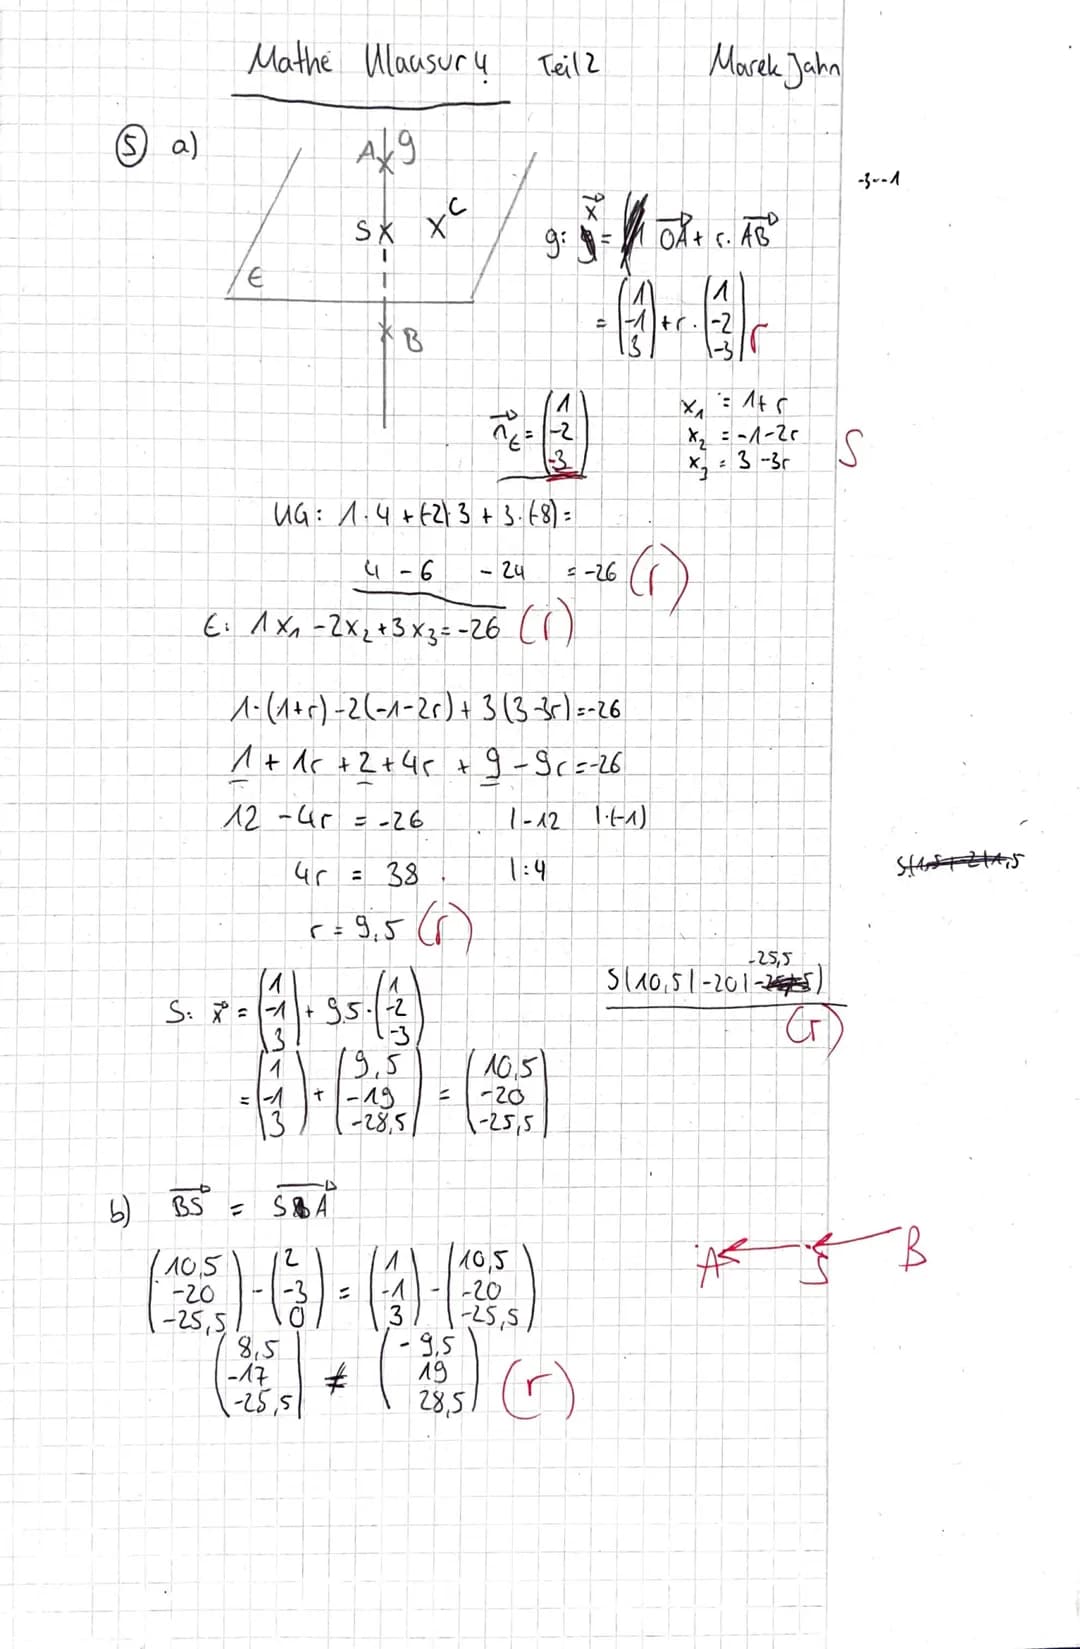 Mathe Klausur 4 Teil 2 Marek Jahn
5 a)
A g
-3--1
S x C
E
B
g: x⃗ = OA⃗ + r · AB⃗
= (1 -1 3) + r · (1 -2 -3) r
n⃗E = (1 -2 -3)
x1 = 1 + r
x2 = -1 - 2r S
x3 = 3 - 3r
UG: 1·4 + (-2)·3 + 3·(-8) =
4 - 6 - 24 = -26 (r)
E: 1x1 - 2x2 + 3x3 = -26 (r)
1·(1+r) - 2(-1-2r) + 3(3-3r) = -26
1 + 1r + 2 + 4r + 9 - 9r = -26
12 - 4r = -26 |-12 |·(-1)
4r = 38 |:4
r = 9,5 (r)
S: x⃗ = (1 -1 3) + 9,5 · (1 -2 -3)
= (1 -1 3) + (9,5 -19 -28,5) = (10,5 -20 -25,5)
-25,5
S(10,5|-20| )
(r)
b) BS⃗ = SA⃗
(10,5 -20 -25,5) - (2 -3 0) = (1 -1 3) - (10,5 -20 -25,5)
(8,5 -17 -25,5) ≠ (-9,5 19 28,5) (r)
A S B